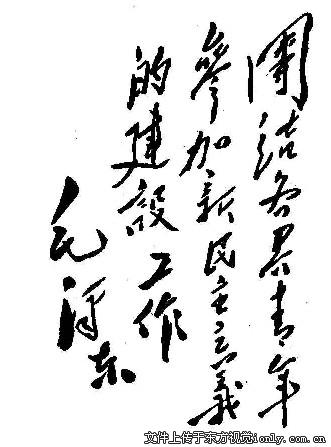 團结各界青年
參加新民主主義
的建設工作
毛澤东
文件上传于东方视觉ionly.com.cn